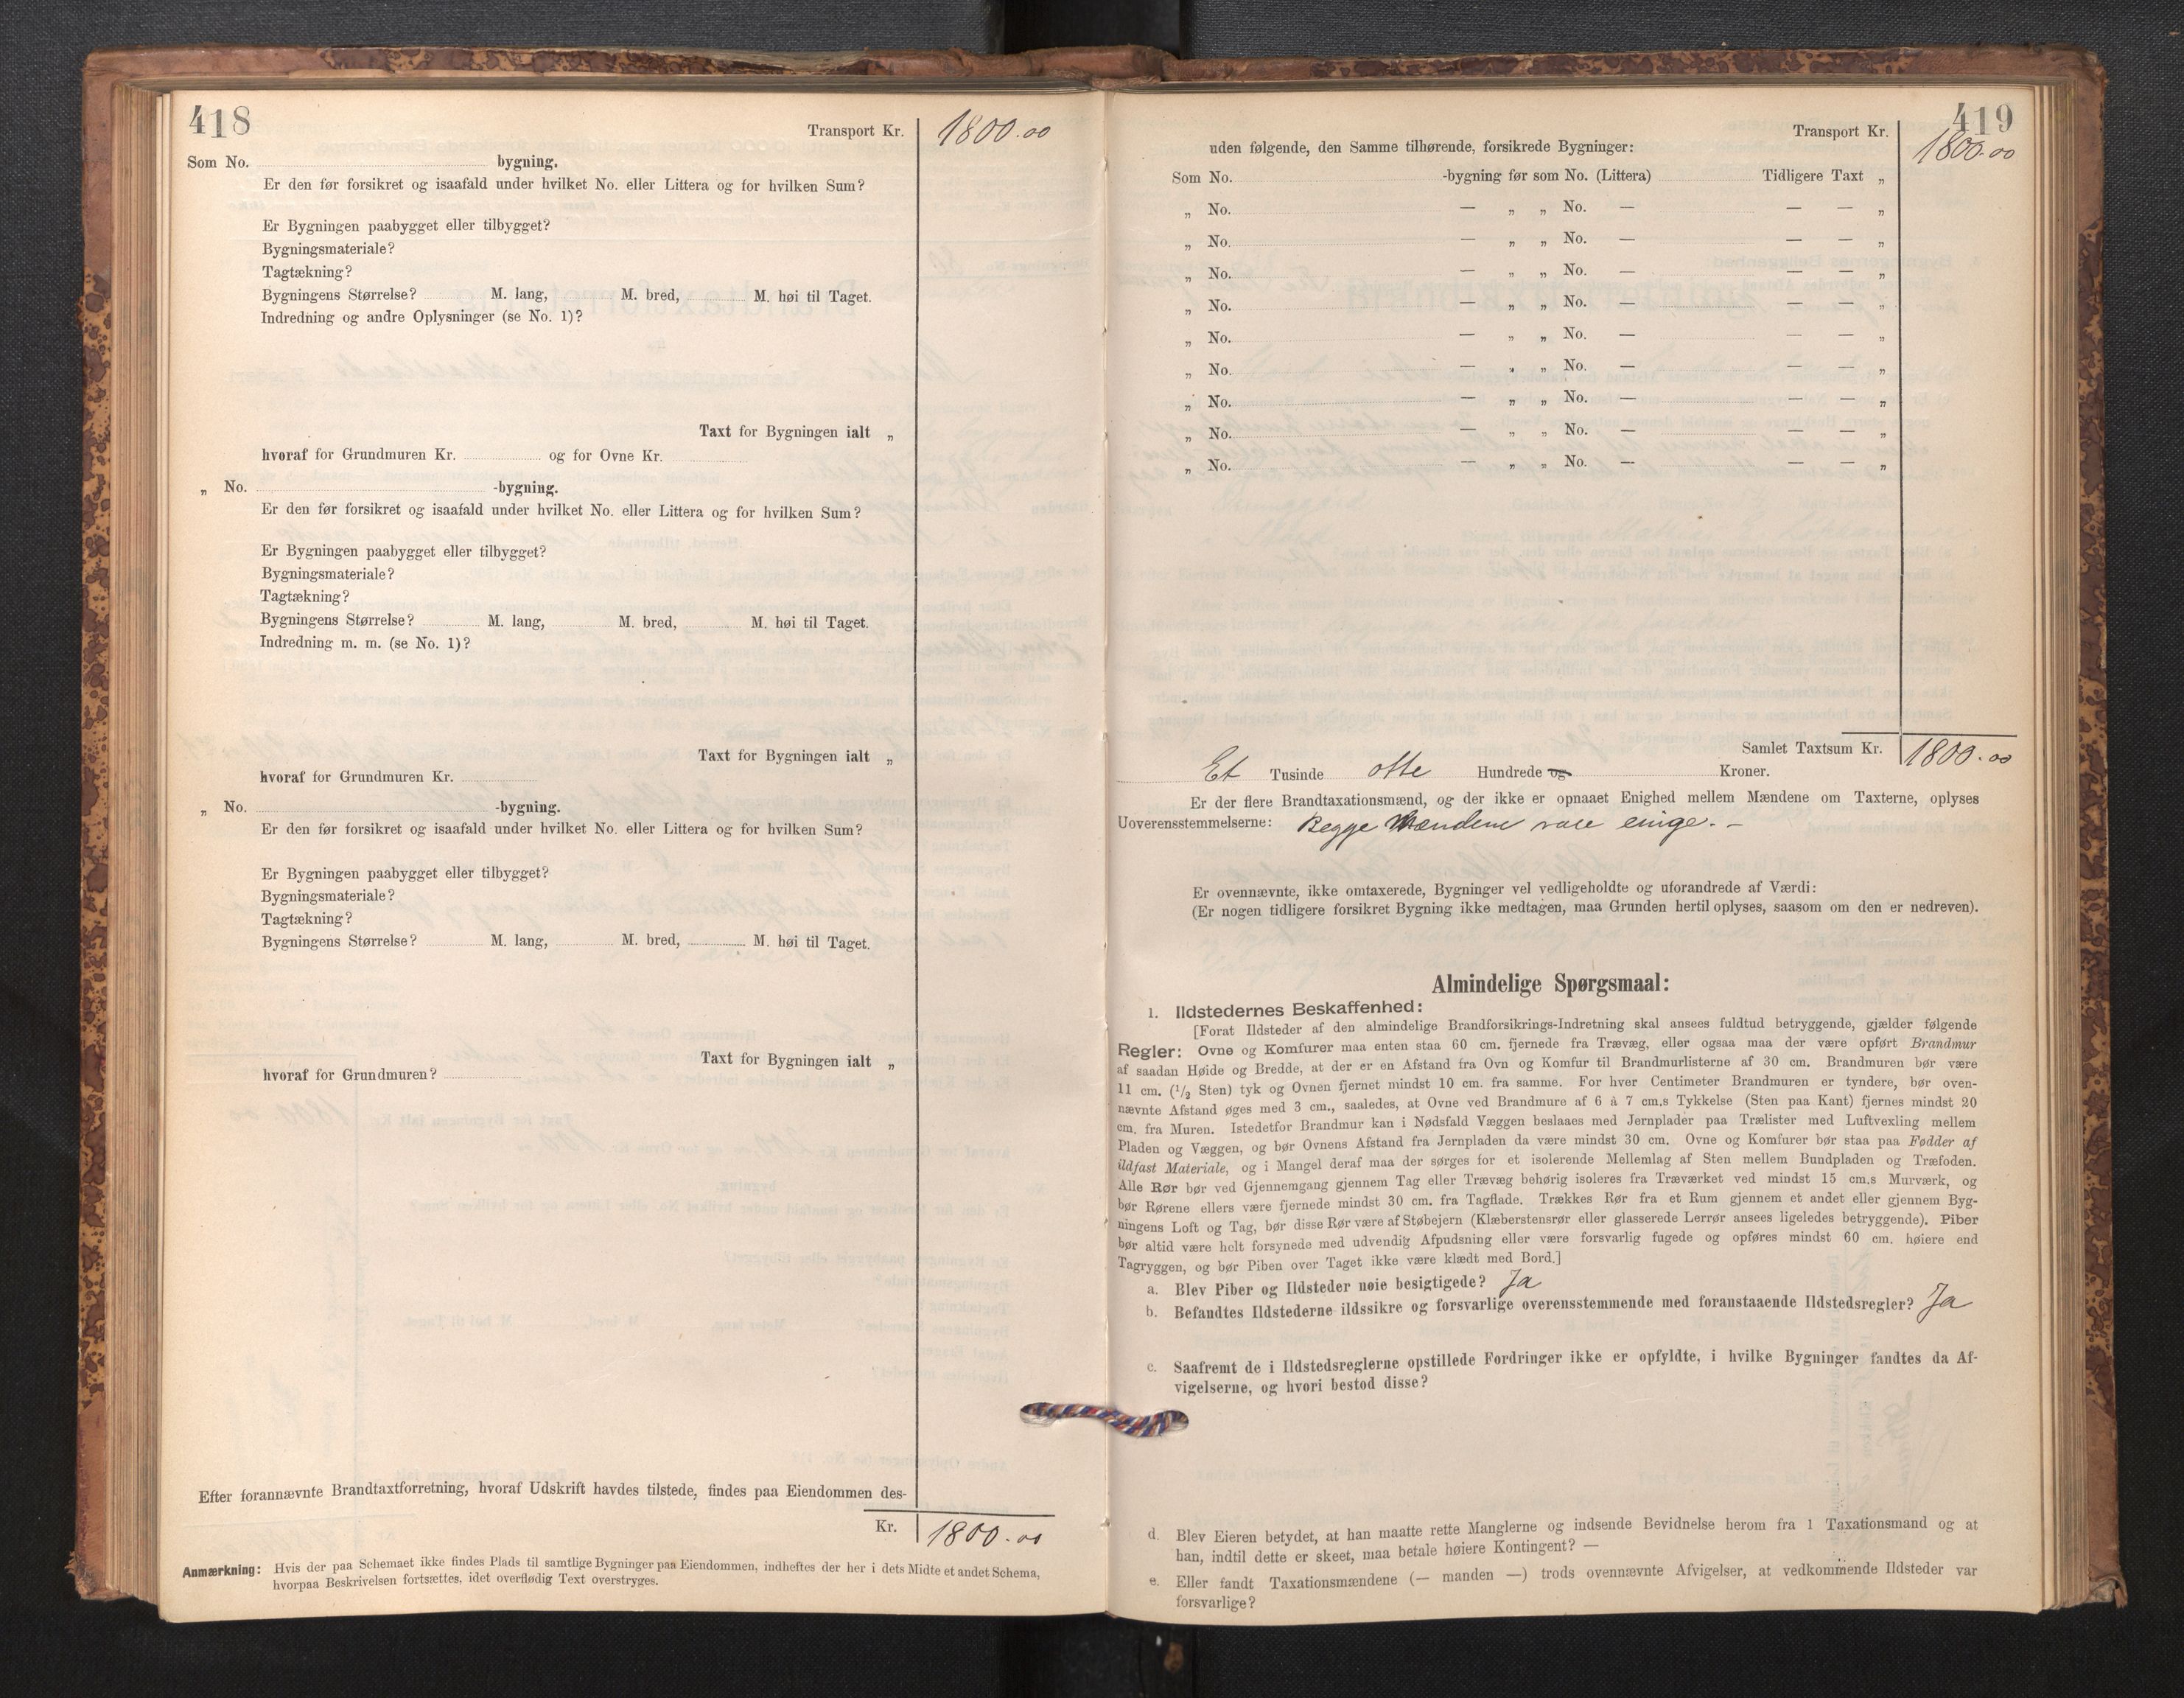 418
Transport Kr. 1800.00
Som No. bygning.
Er den før forsikret og isaafald under hvilket No. eller Littera og for hvilken Sum?
Er Bygningen paabygget eller tilbygget?
Bygningsmateriale?
Tagtækning?
Bygningens Størrelse? M. lang, M. bred, M. høi til Taget.
Indredning og andre Oplysninger (se No. 1)?
Taxt for Bygningen ialt „
hvoraf for Grundmuren Kr. og for Ovne Kr.
„ No. -bygning.
Er den før forsikret og isaafald under hvilket No. eller Littera og for hvilken Sum?
Er Bygningen paabygget eller tilbygget?
Bygningsmateriale?
Tagtækning?
Bygningens Størrelse? M. lang, M. bred, M. høi til Taget.
Indredning m. m. (se No. 1)?
Taxt for Bygningen ialt „
hvoraf for Grundmuren Kr.
„ No. -bygning.
Er den før forsikret og isaafald under hvilket No. eller Littera og for hvilken Sum?
Er Bygningen paabygget eller tilbygget?
Bygningsmateriale?
Tagtækning?
Bygningens Størrelse? M. lang, M. bred, M. høi til Taget.
Taxt for Bygningen ialt „
hvoraf for Grundmuren?
Efter forannævnte Brandtaxtforretning, hvoraf Udskrift havdes tilstede, findes paa Eiendommen des-
Kr. 1800.00
Anmærkning: Hvis der paa Schemaet ikke findes Plads til samtlige Bygninger paa Eiendommen, indheftes der her i dets Midte et andet Schema,
hvorpaa Beskrivelsen fortsættes, idet overflødig Text overstryges.
419
Transport Kr. 1800.00
uden følgende, den Samme tilhørende, forsikrede Bygninger:
Som No. -bygning før som No. (Littera) Tidligere Taxt „
„ No. — „ „ No. — — — „
„ No. — „ „ No. — — — „
„ No. — „ „ No. — — — „
„ No. — „ „ No. — — — „
„ No. — „ „ No. — — — „
„ No. — „ „ No. — — — „
„ No. — „ „ No. — — — „
„ No. — „ „ No. — — — „
„ No. — „ „ No. — — — „
Samlet Taxtsum Kr. 1800.00
Et Tusinde otte Hundrede og Kroner.
Er der flere Brandtaxationsmænd, og der ikke er opnaaet Enighed mellem Mændene om Taxterne, oplyses
Uoverensstemmelserne: Begge Mændene vare enige. –
Er ovennævnte, ikke omtaxerede, Bygninger vel vedligeholdte og uforandrede af Værdi:
(Er nogen tidligere forsikret Bygning ikke medtagen, maa Grunden hertil oplyses, saasom om den er nedreven).
Almindelige Spørgsmaal:
1. Ildstedernes Beskaffenhed:
[Forat Ildsteder af den almindelige Brandforsikrings-Indretning skal ansees fuldtud betryggende, gjælder følgende
Regler: Ovne og Komfurer maa enten staa 60 cm. fjernede fra Trævæg, eller ogsaa maa der være opført Brandmur
af saadan Høide og Bredde, at der er en Afstand fra Ovn og Komfur til Brandmurlisterne af 30 cm. Brandmuren bør være
11 cm. (1/2 Sten) tyk og Ovnen fjernet mindst 10 cm. fra samme. For hver Centimeter Brandmuren er tyndere, bør oven-
nævnte Afstand øges med 3 cm., saaledes, at Ovne ved Brandmure af 6 à 7 cm.s Tykkelse (Sten paa Kant) fjernes mindst 20
cm. fra Muren. Istedetfor Brandmur kan i Nødsfald Væggen beslaaes med Jernplader paa Trælister med Luftvexling mellem
Pladen og Væggen, og bør Ovnens Afstand fra Jernpladen da være mindst 30 cm. Ovne og Komfurer bør staa paa Fødder af
ildfast Materiale, og i Mangel deraf maa der sørges for et isolerende Mellemlag af Sten mellem Bundpladen og Træfoden.
Alle Rør bør ved Gjennemgang gjennem Tag eller Trævæg behørig isoleres fra Træværket ved mindst 15 cm.s Murværk, og
bør Rørene ellers være fjernede mindst 30 cm. fra Tagflade. Trækkes Rør fra et Rum gjennem et andet eller gjennem Byg-
ningens Loft og Tag, bør disse Rør være af Støbejern (Klæberstensrør eller glasserede Lerrør ansees ligeledes betryggende). Piber
bør altid være helt forsynede med udvendig Afpudsning eller være forsvarlig fugede og opføres mindst 60 cm. høiere end
Tagryggen, og bør Piben over Taget ikke være klædt med Bord.]
a. Blev Piber og Ildsteder nøie besigtigede? Ja
b. Befandtes Ildstederne ildssikre og forsvarlige overensstemmende med foranstaaende Ildstedsregler? Ja
c. Saafremt de i Ildstedsreglerne opstillede Fordringer ikke er opfyldte, i hvilke Bygninger fandtes da Af-
vigelserne, og hvori bestod disse?
d. Blev Eieren betydet, at han maatte rette Manglerne og indsende Bevidnelse herom fra 1 Taxationsmand og at
han, indtil dette er skeet, maa betale høiere Kontingent? —
e. Eller fandt Taxationsmændene (— manden —) trods ovennævnte Afvigelser, at vedkommende Ildsteder var
forsvarlige?